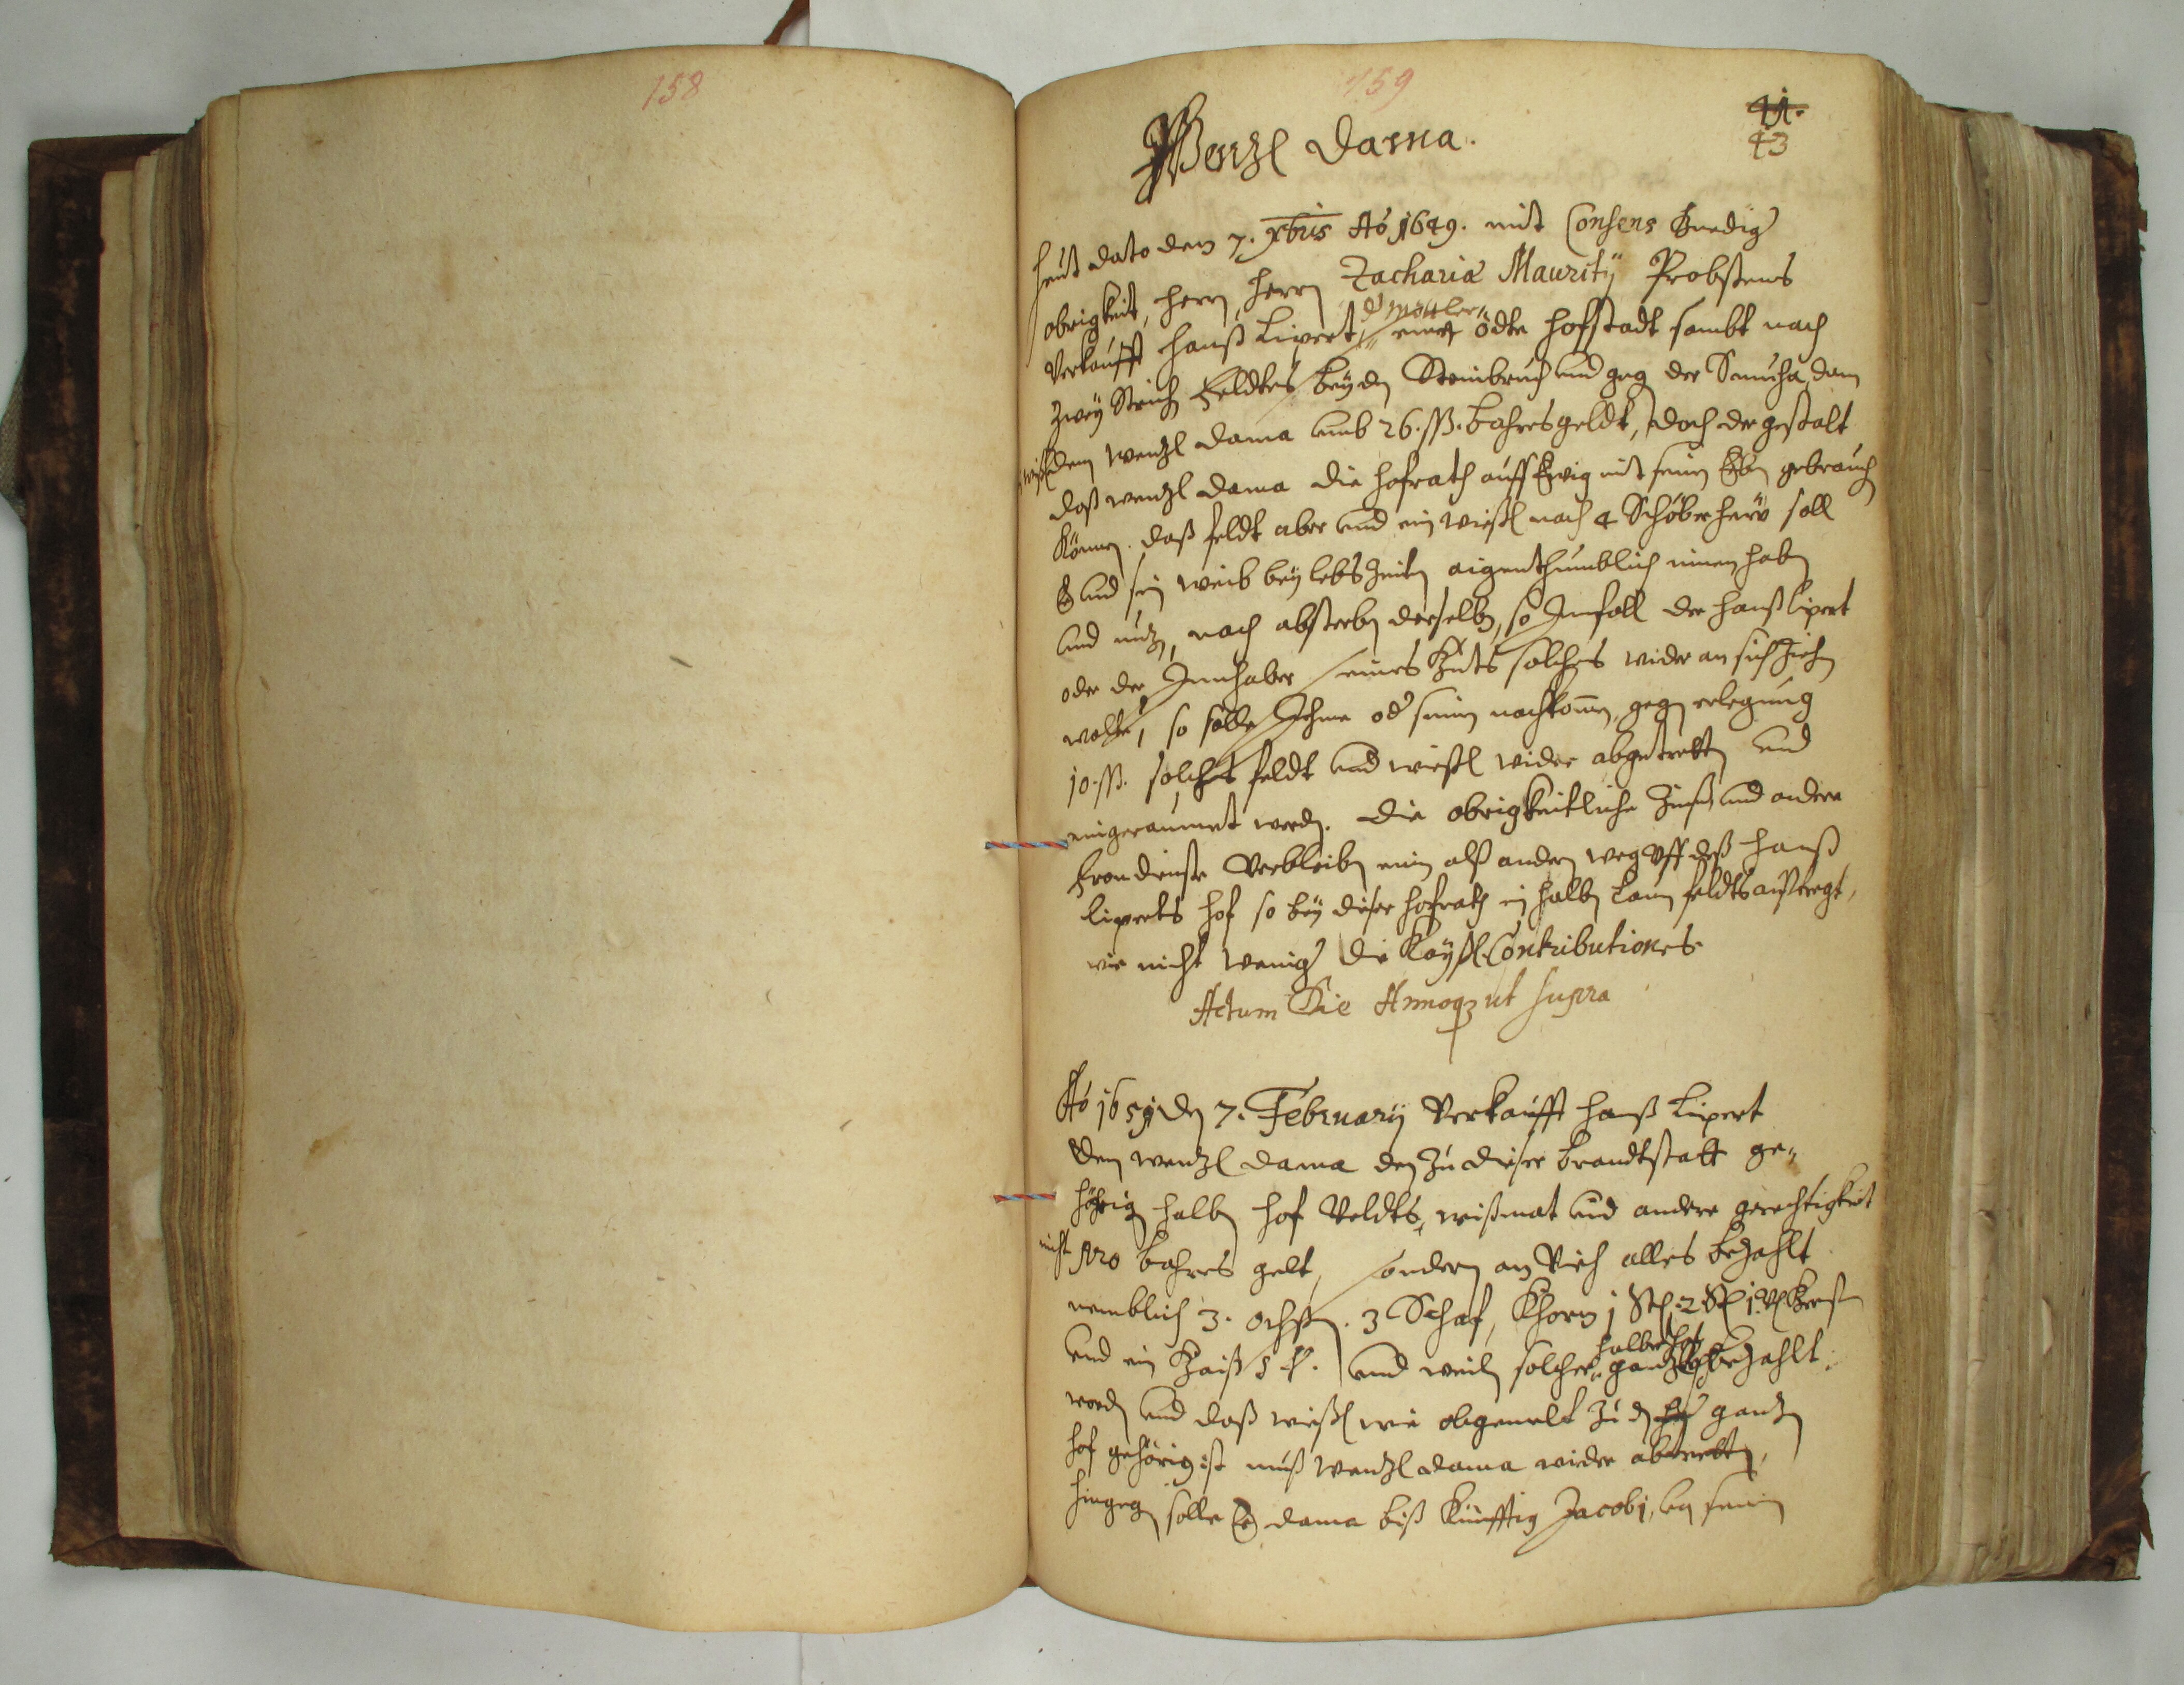 158
159
41.
43
Wenzl Dama.
Heut dato den 7. xbris Ao 1649. mit Consens Gnedig
obrigkeit, Herrn, Herrn Zachariæ Maurity Probstens
Verkaufft Hanß Lipert, eine ödte Hofstadt sambt nach
Zwey Strich Feldtes bey den Steinbruch und geg der dem
dem Wenzl Dama umb 26. ß. bahres geldt, doch der gestalt
daß Wenzl Dama die Hofrath auff Ewig mit seinen Erben gebrauchen
können. daß feldt aber und ein wießl nach 4 Schöber heüw soll
Er und sein Weib bey lebs Zeiten aigenthumblich innen haben
und nutzen, nach absterben derselben, so Imfall der Hanß Lipert
oder der Innhaber seines Guts solches wider an sich Ziehen
wolte, so solle Ihme od seinen nachkomen, gegen erlegung
10. ß. solches feldt und wießl wider abgetretten und
eingeraumet werden. Die obrigkeitliche Zinß und andere
Frondienste Verbleiben ein alß andern weg Uff deß Hanß
Liperts Hof so bey dieser Hofrath ein halben Lann feldts austregt,
wie nicht Weniger die Kaysl. Contributiones.
Actum Die Annoqz ut supra
Ao 1651 den 7. February Verkaufft Hanß Lipert
dem Wenzl Dama den Zu dieser brandtstatt ge=
hörig halben Hof Veldts, wißmat und andere gerechtigkeit
nicht pro bahres gelt, sondern an Vieh alles bezahlt
nemblich 3. ochssen. 3 Schaf, Khorn 1 Str. 2 Gersten
und ein Gaiß 5 f. und weiln solcher halbe Hof gantzlich bezahlt
worden und daß wießl wie obgemelt Zu dem gantzen
Hof gehörig ist muß Wenzl Dama wieder abtretten,
hingegen solle Er Dama biß künfftig Jacobi, bey seinen